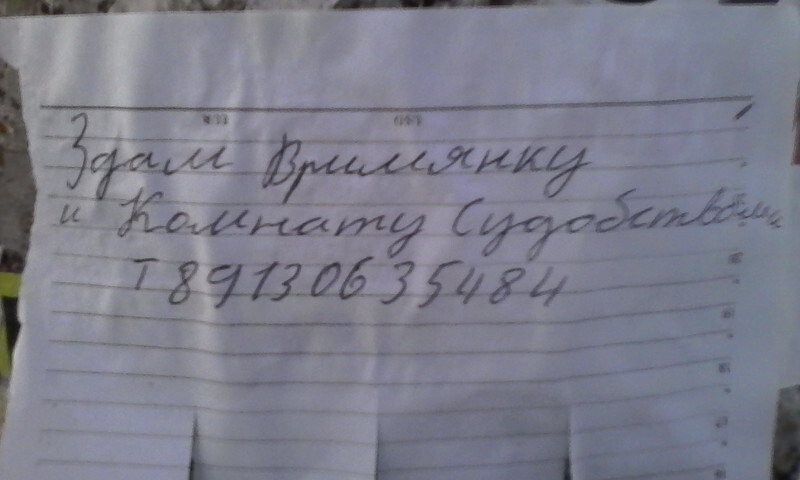 Здам Времянку
и Комнату Судобствами
т 89130635484